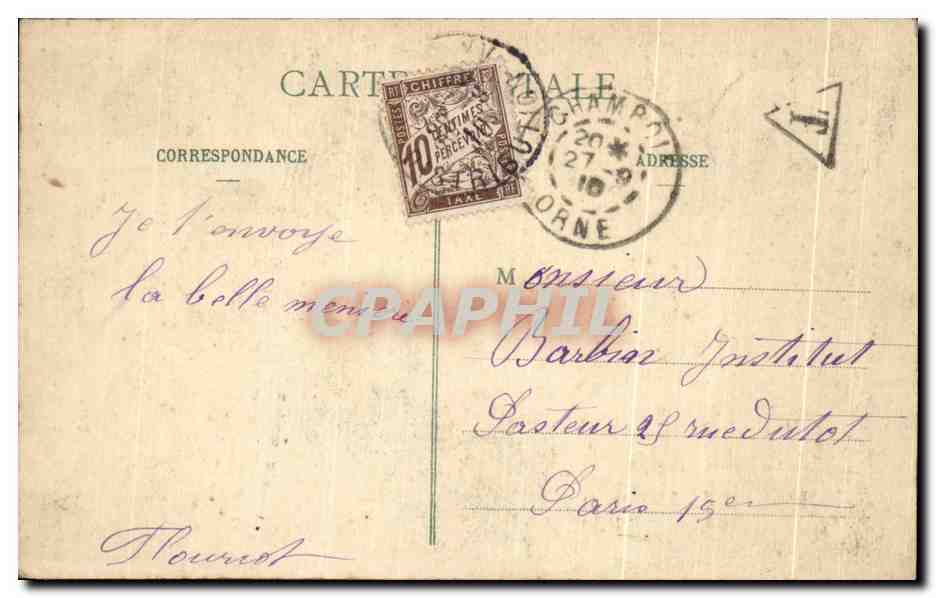 CARTE POSTALE
CORRESPONDANCE
ADRESSE
RF CHIFFRE
POSTES
10 CENTIMES
A PERCEVOIR
TAXE RF
CHAMBOI
20 *
27 -9
10
ORNE
T
Je t'envoye
la belle meniere
Flouriot
Monsieur
Barbin Institut
Pasteur 25 rue Dutot
Paris 15e
CPAPHIL